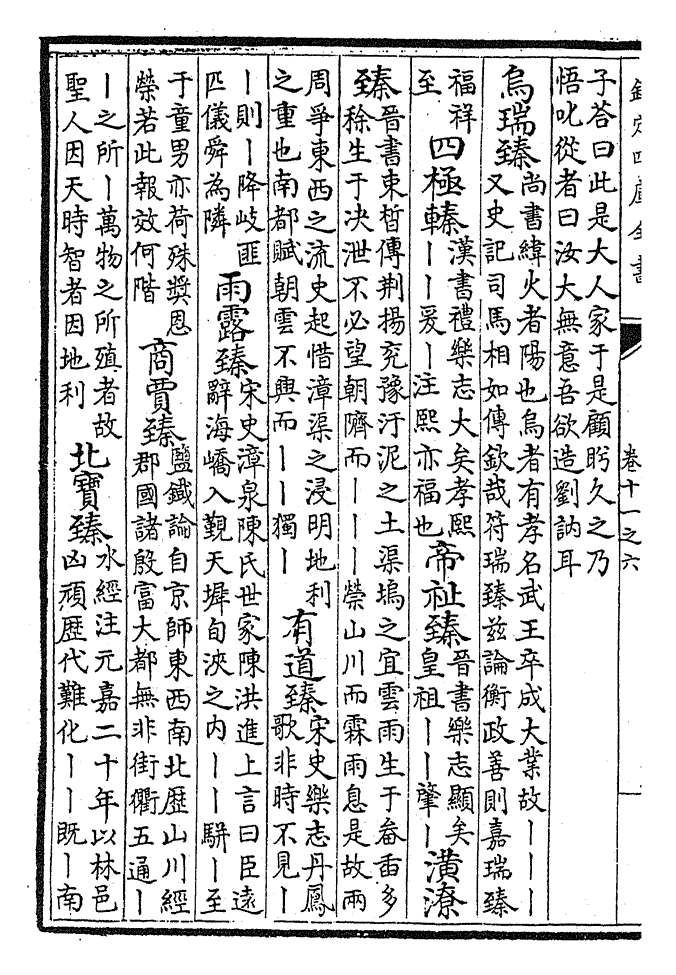 欽定四庫全書 卷十一之六
子荅曰此是大人家于是顧眄久之乃
悟叱從者曰汝大無意吾欲造劉訥耳
烏瑞臻
尚書緯火者陽也烏者有孝名武王卒成大業故｜｜｜
又史記司馬相如傳欽哉符瑞臻茲論衡政善則嘉瑞臻
福祥
至
四極轃
漢書禮樂志大矣孝熙
｜｜爰｜注熙亦福也
帝祉臻
晉書樂志顯矣
皇祖｜｜肇｜
潢潦
臻
晉書東晳傳荆揚兖豫汙泥之土渠塢之宜雲雨生于畚臿多
稌生于决泄不必望朝隮而｜｜｜禜山川而霖雨息是故兩
周爭東西之流史起惜漳渠之浸明地利
之重也南都賦朝雲不興而｜｜獨｜
有道臻
宋史樂志丹鳳
歌非時不見｜
｜則｜降岐匪
匹儀舜為隣
雨露臻
宋史漳泉陳氏世家陳洪進上言曰臣遠
辭海嶠入覲天墀旬浹之内｜｜駢｜至
于童男亦荷殊奬恩
榮若此報效何階
商賈臻
鹽鐵論自京師東西南北歴山川經
郡國諸殷富大都無非街衢五通｜
｜之所｜萬物之所殖者故
聖人因天時智者因地利
北寶臻
水經注元嘉二十年以林邑
凶頑歴代難化｜｜既｜南